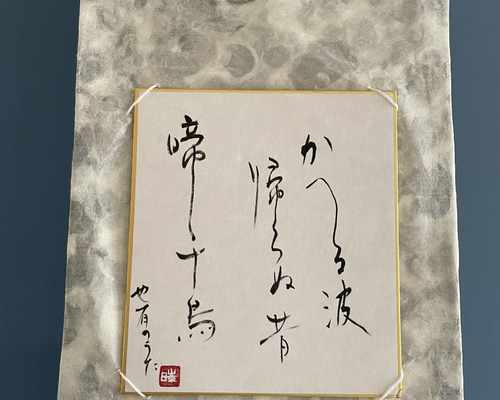 かへる波
帰らぬ昔
啼く千鳥
也有のうた
睦